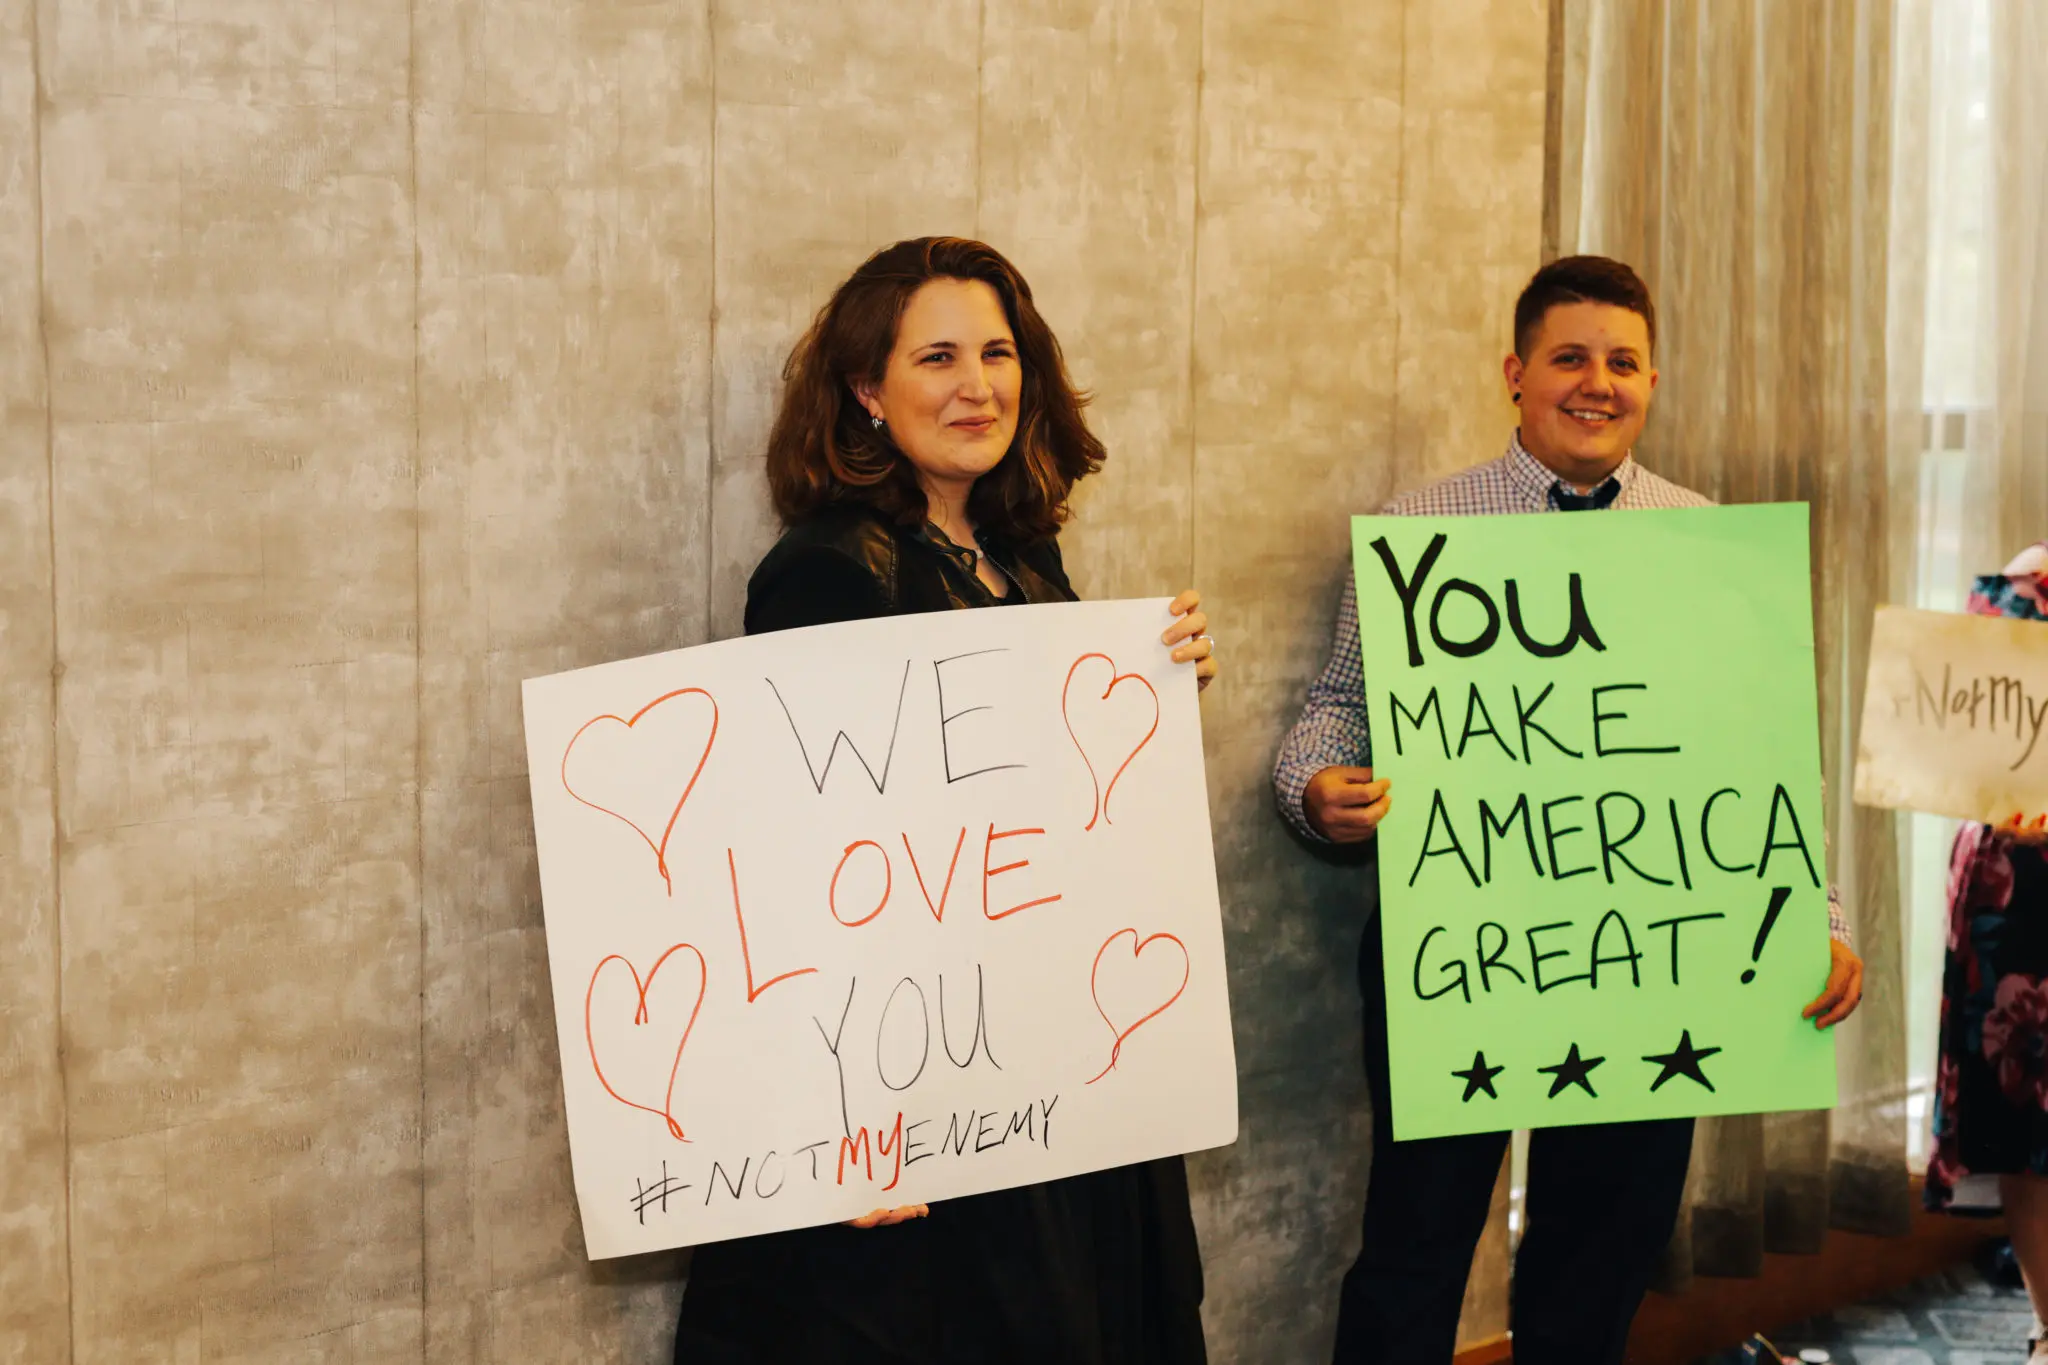 WE
LOVE
YOU
#NOTMYENEMY
YOU
MAKE
AMERICA
GREAT!
#NotMy